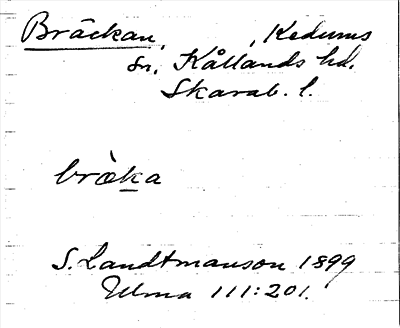 Bräckan, Kedums
sn, Kållands hd.
Skarab. l.
bræ̀ka
S. Landtmanson 1899
Ulma 111:201.